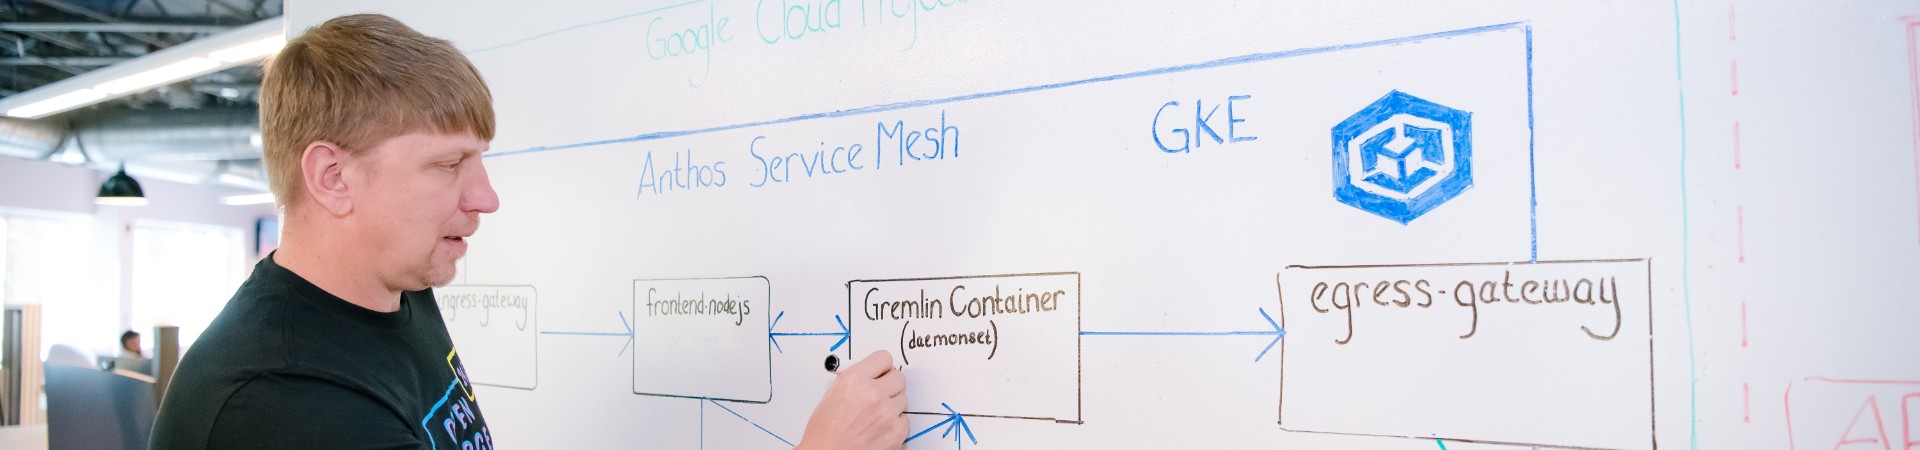 Google Cloud Project
Anthos Service Mesh
GKE
ingress-gateway
frontend-nodejs
Gremlin Container
(daemonset)
egress-gateway